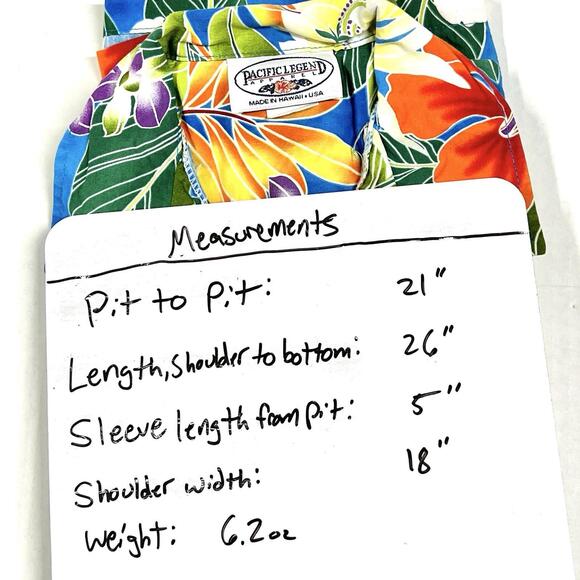 PACIFIC LEGEND
APPAREL
MADE IN HAWAII • USA
Measurements
Pit to Pit: 21"
Length, Shoulder to bottom: 26"
Sleeve length from pit: 5"
Shoulder width: 18"
Weight: 6.2oz